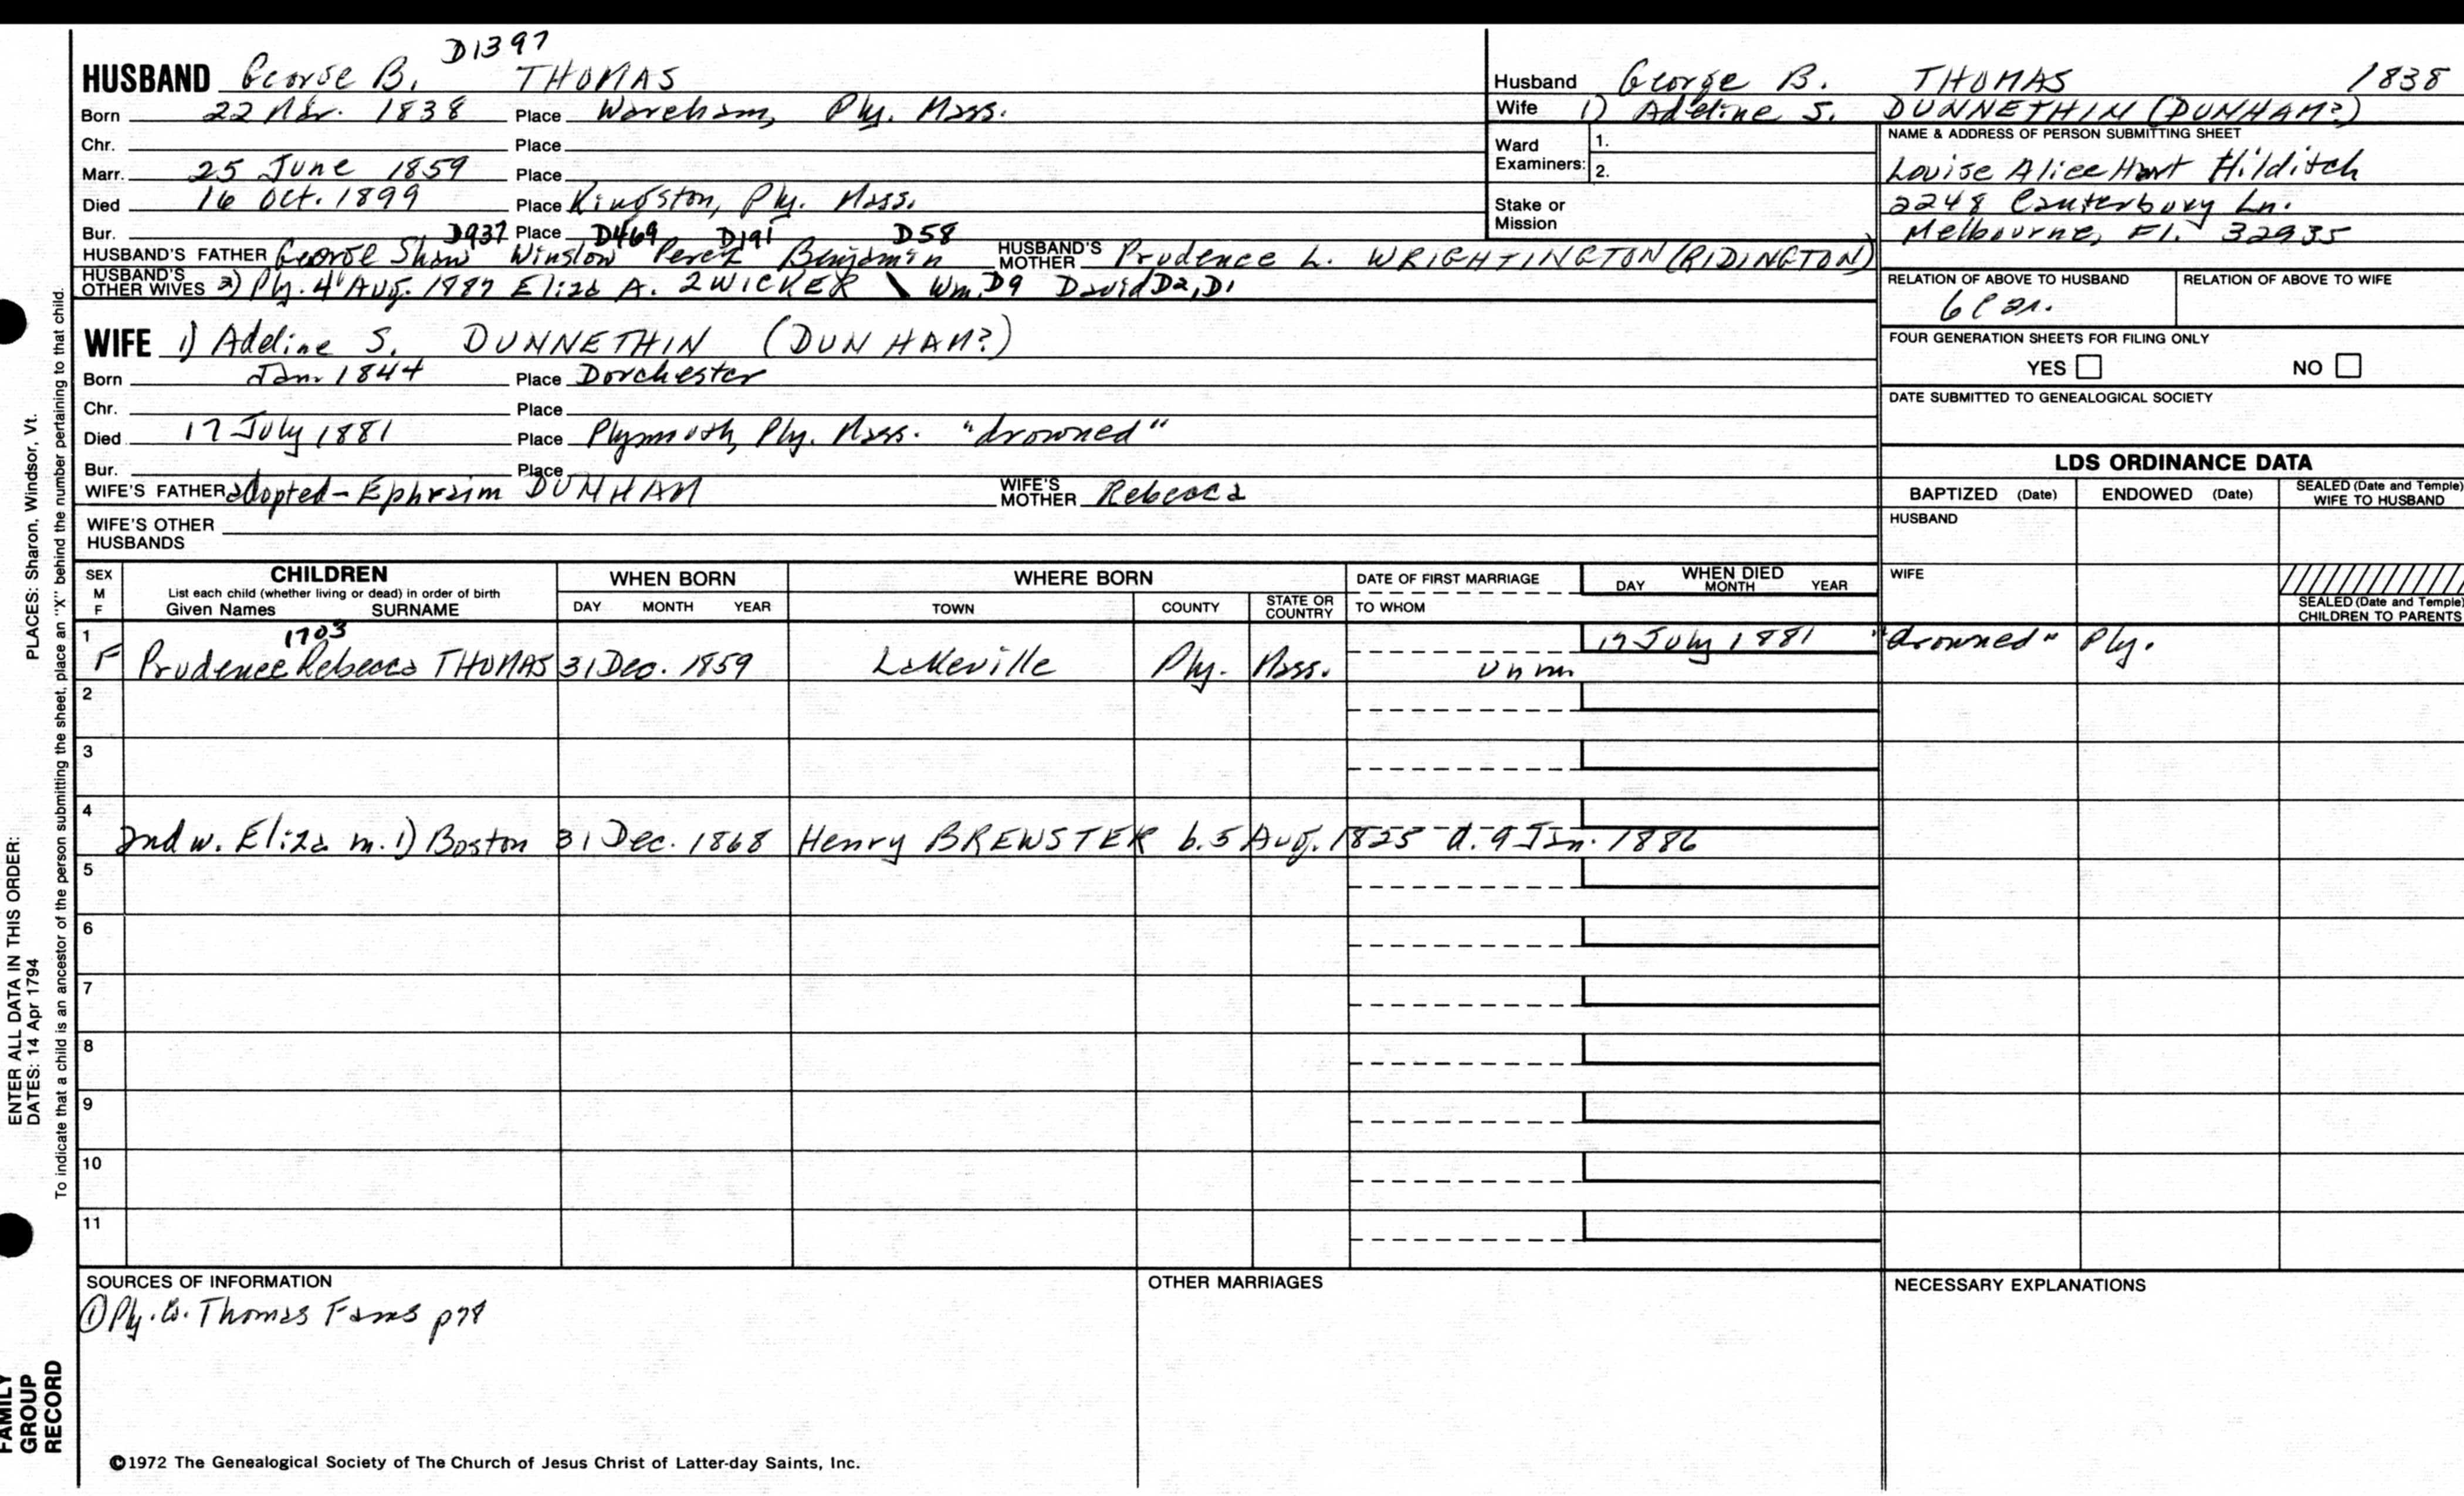 D1397
HUSBAND George B. THOMAS
Born 22 Mar. 1838 Place Wareham, Ply. Mass.
Chr. Place
Marr. 25 June 1859 Place
Died 16 Oct. 1899 Place Kingston, Ply. Mass.
Bur. D937 Place D469 D191 D58
HUSBAND'S FATHER George Shaw Winslow Perez Benjamin HUSBAND'S MOTHER Prudence L. WRIGHTINGTON (RIDINGTON)
HUSBAND'S OTHER WIVES 2) Ply. 4 Aug. 1887 Eliza A. ZWICKER \ Wm. D9 David D2, D1
WIFE 1) Adeline S. DUNNETHIN (DUNHAM?)
Born Jan. 1844 Place Dorchester
Chr. Place
Died 17 July 1881 Place Plymouth, Ply. Mass. "drowned"
Bur. Place
WIFE'S FATHER adopted - Ephraim DUNHAM WIFE'S MOTHER Rebecca
WIFE'S OTHER HUSBANDS
Husband George B. THOMAS 1838
Wife 1) Adeline S. DUNNETHIN (DUNHAM?)
Ward Examiners: 1.
2.
Stake or Mission
NAME & ADDRESS OF PERSON SUBMITTING SHEET
Louise Alice Hart Hilditch
2248 Canterbury Ln.
Melbourne, Fl. 32935
RELATION OF ABOVE TO HUSBAND RELATION OF ABOVE TO WIFE
FOUR GENERATION SHEETS FOR FILING ONLY
YES NO
DATE SUBMITTED TO GENEALOGICAL SOCIETY
LDS ORDINANCE DATA
BAPTIZED (Date) ENDOWED (Date) SEALED (Date and Temple) WIFE TO HUSBAND
HUSBAND
WIFE
SEALED (Date and Temple) CHILDREN TO PARENTS
SEX M F CHILDREN WHEN BORN WHERE BORN DATE OF FIRST MARRIAGE WHEN DIED
List each child (whether living or dead) in order of birth
Given Names SURNAME DAY MONTH YEAR TOWN COUNTY STATE OR COUNTRY TO WHOM DAY MONTH YEAR
1703
1 F Prudence Rebecca THOMAS 31 Dec. 1859 Lakeville Ply. Mass. unm 17 July 1881 "drowned" Ply.
2
3
4
2nd w. Eliza m. 1) Boston 31 Dec. 1868 Henry BREWSTER b. 5 Aug. 1825 d. 9 Jan. 1886
5
6
7
8
9
10
11
SOURCES OF INFORMATION
① Ply. Co. Thomas Fams p78
OTHER MARRIAGES
NECESSARY EXPLANATIONS
©1972 The Genealogical Society of The Church of Jesus Christ of Latter-day Saints, Inc.
PLACES: Sharon, Windsor, Vt.
To indicate that a child is an ancestor of the person submitting the sheet, place an "X" behind the number pertaining to that child.
ENTER ALL DATA IN THIS ORDER:
DATES: 14 Apr 1794
FAMILY
GROUP
RECORD